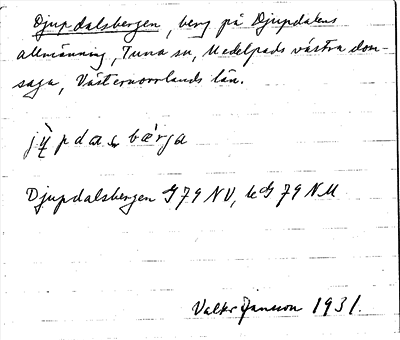 Djupdalsbergen, berg på Djupdalens
allmänning, Tuna sn, Medelpads västra dom-
saga, Västernorrlands län.
Djupdalsbergen G79 NV, G79 NV
Valter Jansson 1931.